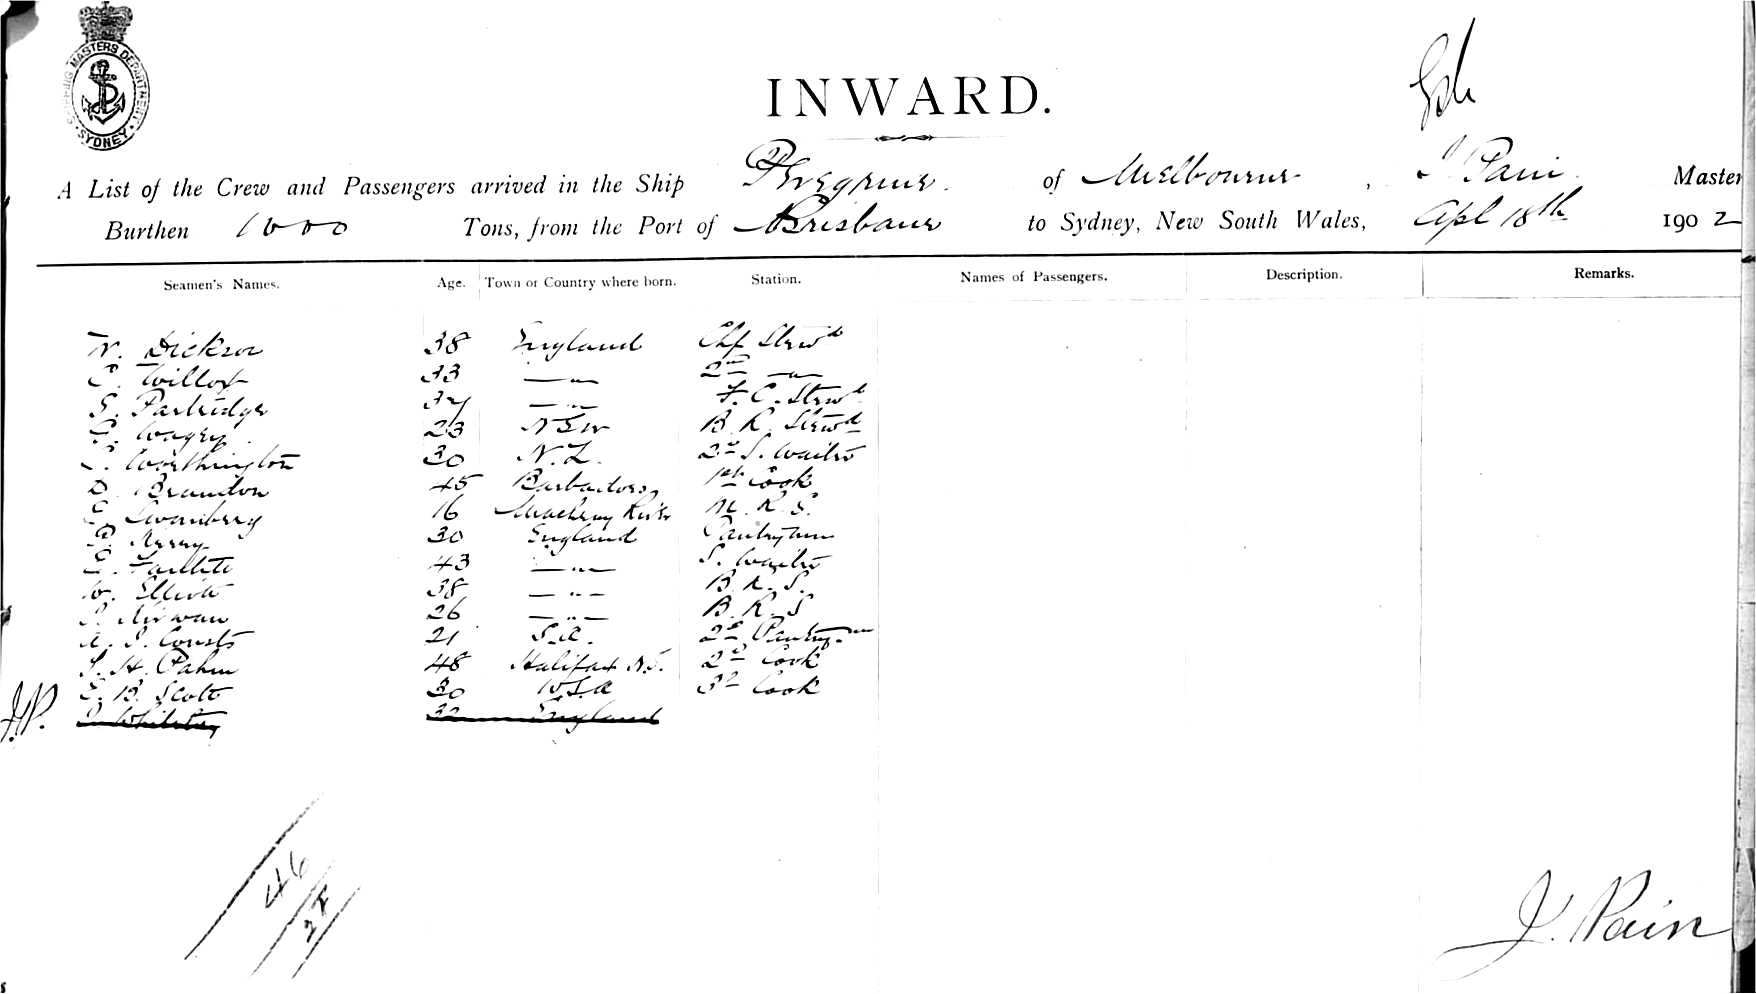 SHIPPING MASTERS DEPARTMENT SYDNEY
INWARD.
A List of the Crew and Passengers arrived in the Ship Peregrine of Melbourne, J. Pain Master
Burthen 1000 Tons, from the Port of Brisbane to Sydney, New South Wales, Apl 18th 1902
Seamen's Names. Age. Town or Country where born. Station. Names of Passengers. Description. Remarks.
W. Dickson 38 England Chf Stewd
Willox 33 — " — 2nd — " —
S. Partridge — " — F. C. Stewd
23 NSW B. R. Stewd
Worthington 30 N.Z. 2nd S. Waiter
D. Brandon 45 Barbadoes 1st Cook
E. Swanberg 16 River M. R. S.
30 England Pantryman
43 — " — S. Waiter
W. Elliott 38 — " — B. R. S.
Kirwan 26 — " — B. R. S
21 S.A. 2nd Pantryman
48 Halifax N.S. 2nd Cook
E. B. Scott 30 USA 3rd Cook
J.P. 32 England
46
J. Pain